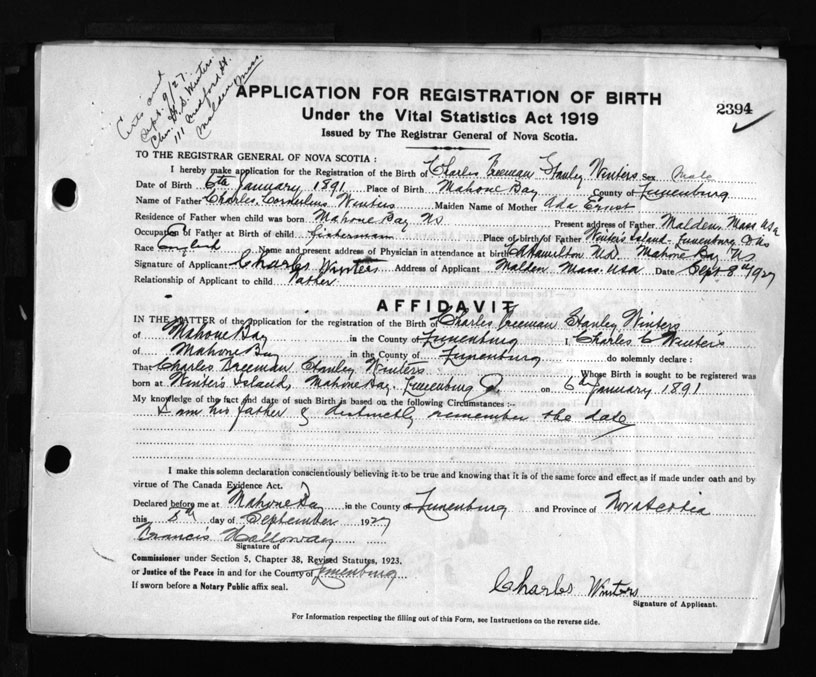 Cert. sent
Sept. 9/27.
Chas. F. S. Winters
111 St.
Malden Mass.
APPLICATION FOR REGISTRATION OF BIRTH
2394
Under the Vital Statistics Act 1919
Issued by The Registrar General of Nova Scotia.
TO THE REGISTRAR GENERAL OF NOVA SCOTIA :
I hereby make application for the Registration of the Birth of Charles Freeman Stanley Winters Sex Male
Date of Birth 6th January 1891 Place of Birth Mahone Bay County of Lunenburg
Name of Father Charles Cornderlius Winters Maiden Name of Mother Ada Ernst
Residence of Father when child was born Mahone Bay NS Present address of Father Malden Mass USA
Occupation of Father at Birth of child Fisherman Place of birth of Father Winters Island Lunenburg Co NS
Race English Name and present address of Physician in attendance at birth C Hamilton M.D. Mahone Bay NS
Signature of Applicant Charles Winters Address of Applicant Malden Mass. USA Date Sept 8th 1927
Relationship of Applicant to child Father.
AFFIDAVIT
IN THE MATTER of the Application for the registration of the Birth of Charles Freeman Stanley Winters
of Mahone Bay in the County of Lunenburg I, Charles C Winters
of Mahone Bay in the County of Lunenburg do solemnly declare :
That Charles Freeman Stanley Winters Whose Birth is sought to be registered was
born at Winters Island, Mahone Bay, Lunenburg Co. on 6th January 1891
My knowledge of the fact and date of such Birth is based on the following Circumstances :-
I am his father & distinctly remember the date
I make this solemn declaration conscientiously believing it to be true and knowing that it is of the same force and effect as if made under oath and by
virtue of The Canada Evidence Act.
Declared before me at Mahone Bay in the County of Lunenburg and Province of Nova Scotia
this 8th day of September 1927
Francis Holloway
Signature of
Commissioner under Section 5, Chapter 38, Revised Statutes, 1923.
or Justice of the Peace in and for the County of Lunenburg
If sworn before a Notary Public affix seal.
Charles Winters
Signature of Applicant.
For Information respecting the filling out of this Form, see Instructions on the reverse side.